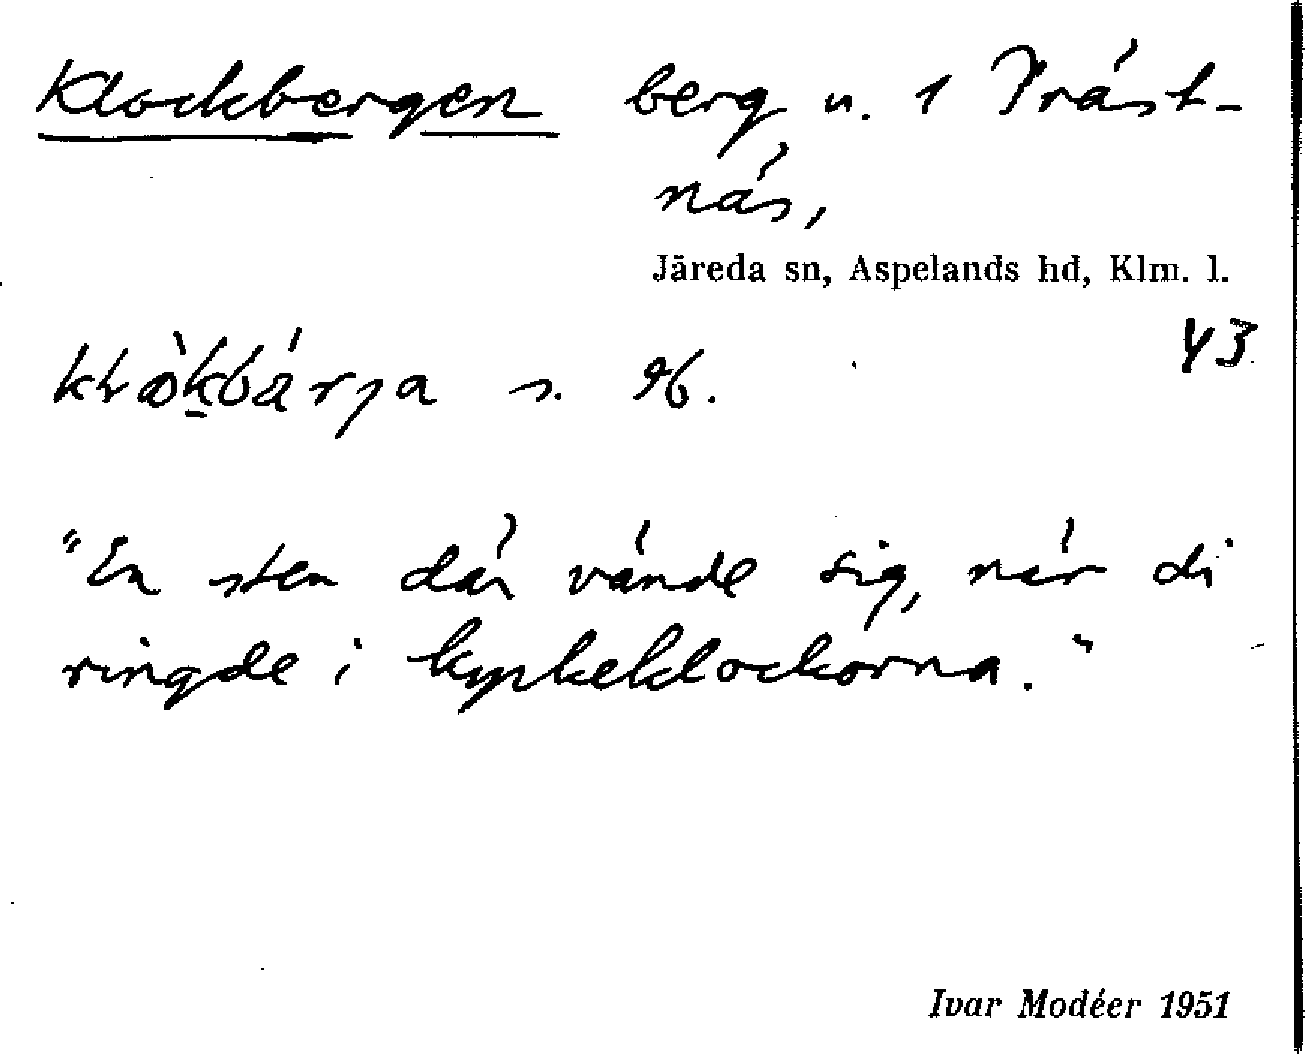 Klockbergen berg u. 1 Präst-
näs,
Järeda sn, Aspelands hd, Klm. l.
43
s.
"En sten där vände sig, när di
ringde i kyrkeklockorna."
Ivar Modéer 1951